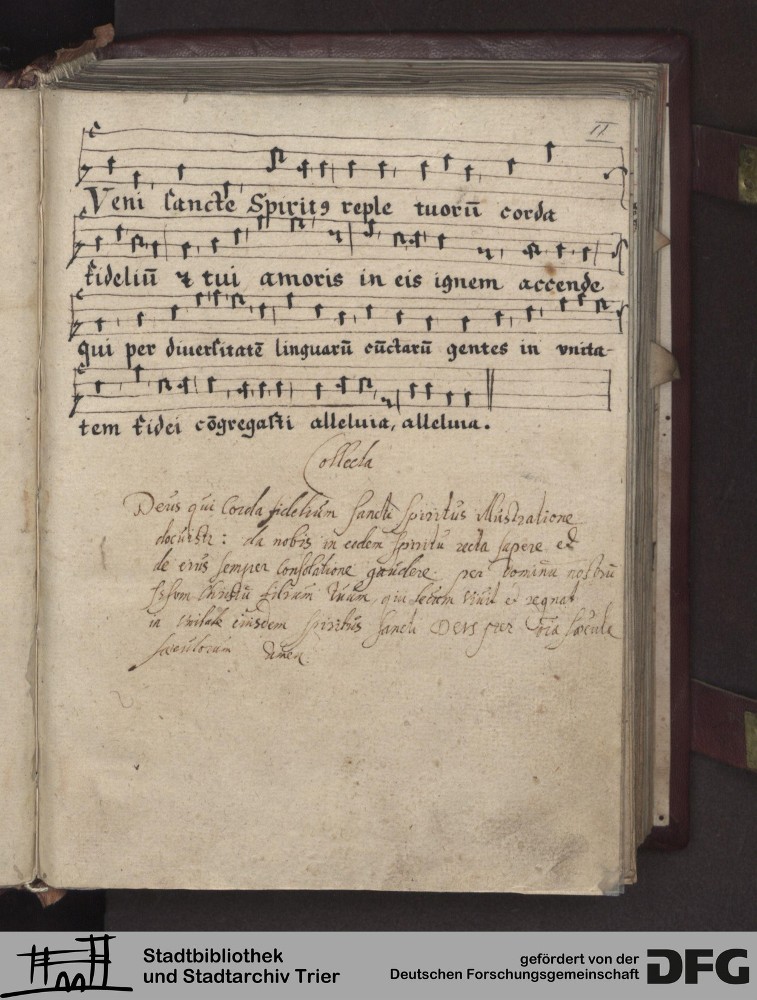 II
Veni sancte Spiritꝰ reple tuorū corda
fideliū ⁊ tui amoris in eis ignem accende
qui per diuersitatē linguarū cūctarū gentes in vnita-
tem fidei cōgregasti alleluia, alleluia.
Collecta
Deus qui Corda fidelium Sancti Spiritus Illustratione
docuisti: da nobis in eodem spiritu recta sapere et
de eius semper Consolatione gaudere. per Dominū nostrū
Jesum Christū filium tuum, qui tecum viuit et regnat
in vnitate eiusdem spiritus Sancti Deus per o̅ia sæcula
sæculorum Amen
Stadtbibliothek
und Stadtarchiv Trier
gefördert von der
Deutschen Forschungsgemeinschaft
DFG